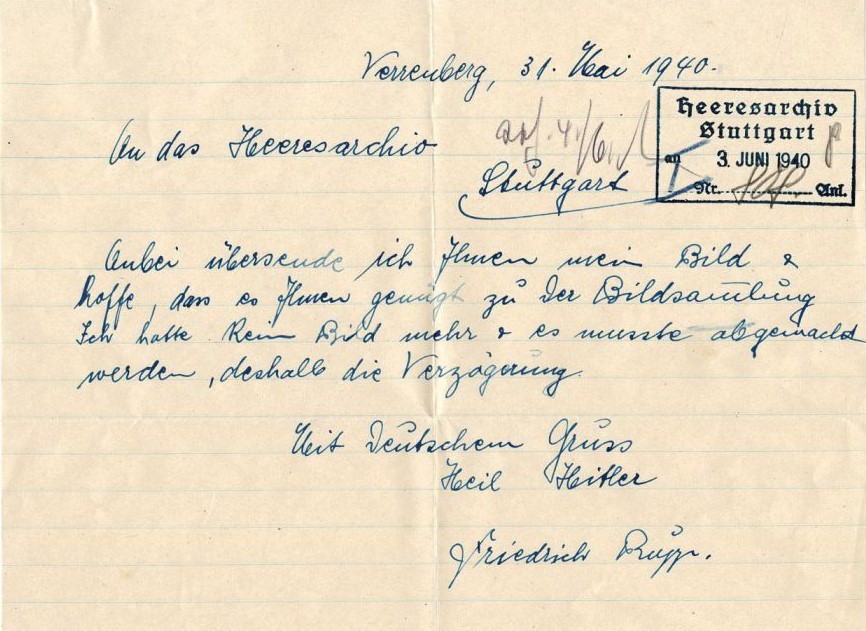 Verrenberg, 31. Mai 1940.
Heeresarchiv
Stuttgart
an 3. JUNI 1940
Nr. Anl.
An das Heeresarchiv
Stuttgart
Anbei übersende ich Ihnen mein Bild &
hoffe, dass es Ihnen genügt zu der Bildsamlung
Ich hatte kein Bild mehr & es musste abgemacht
werden, deshalb die Verzögerung.
Mit Deutschem Gruss
Heil Hitler
Friedrich Rupp.